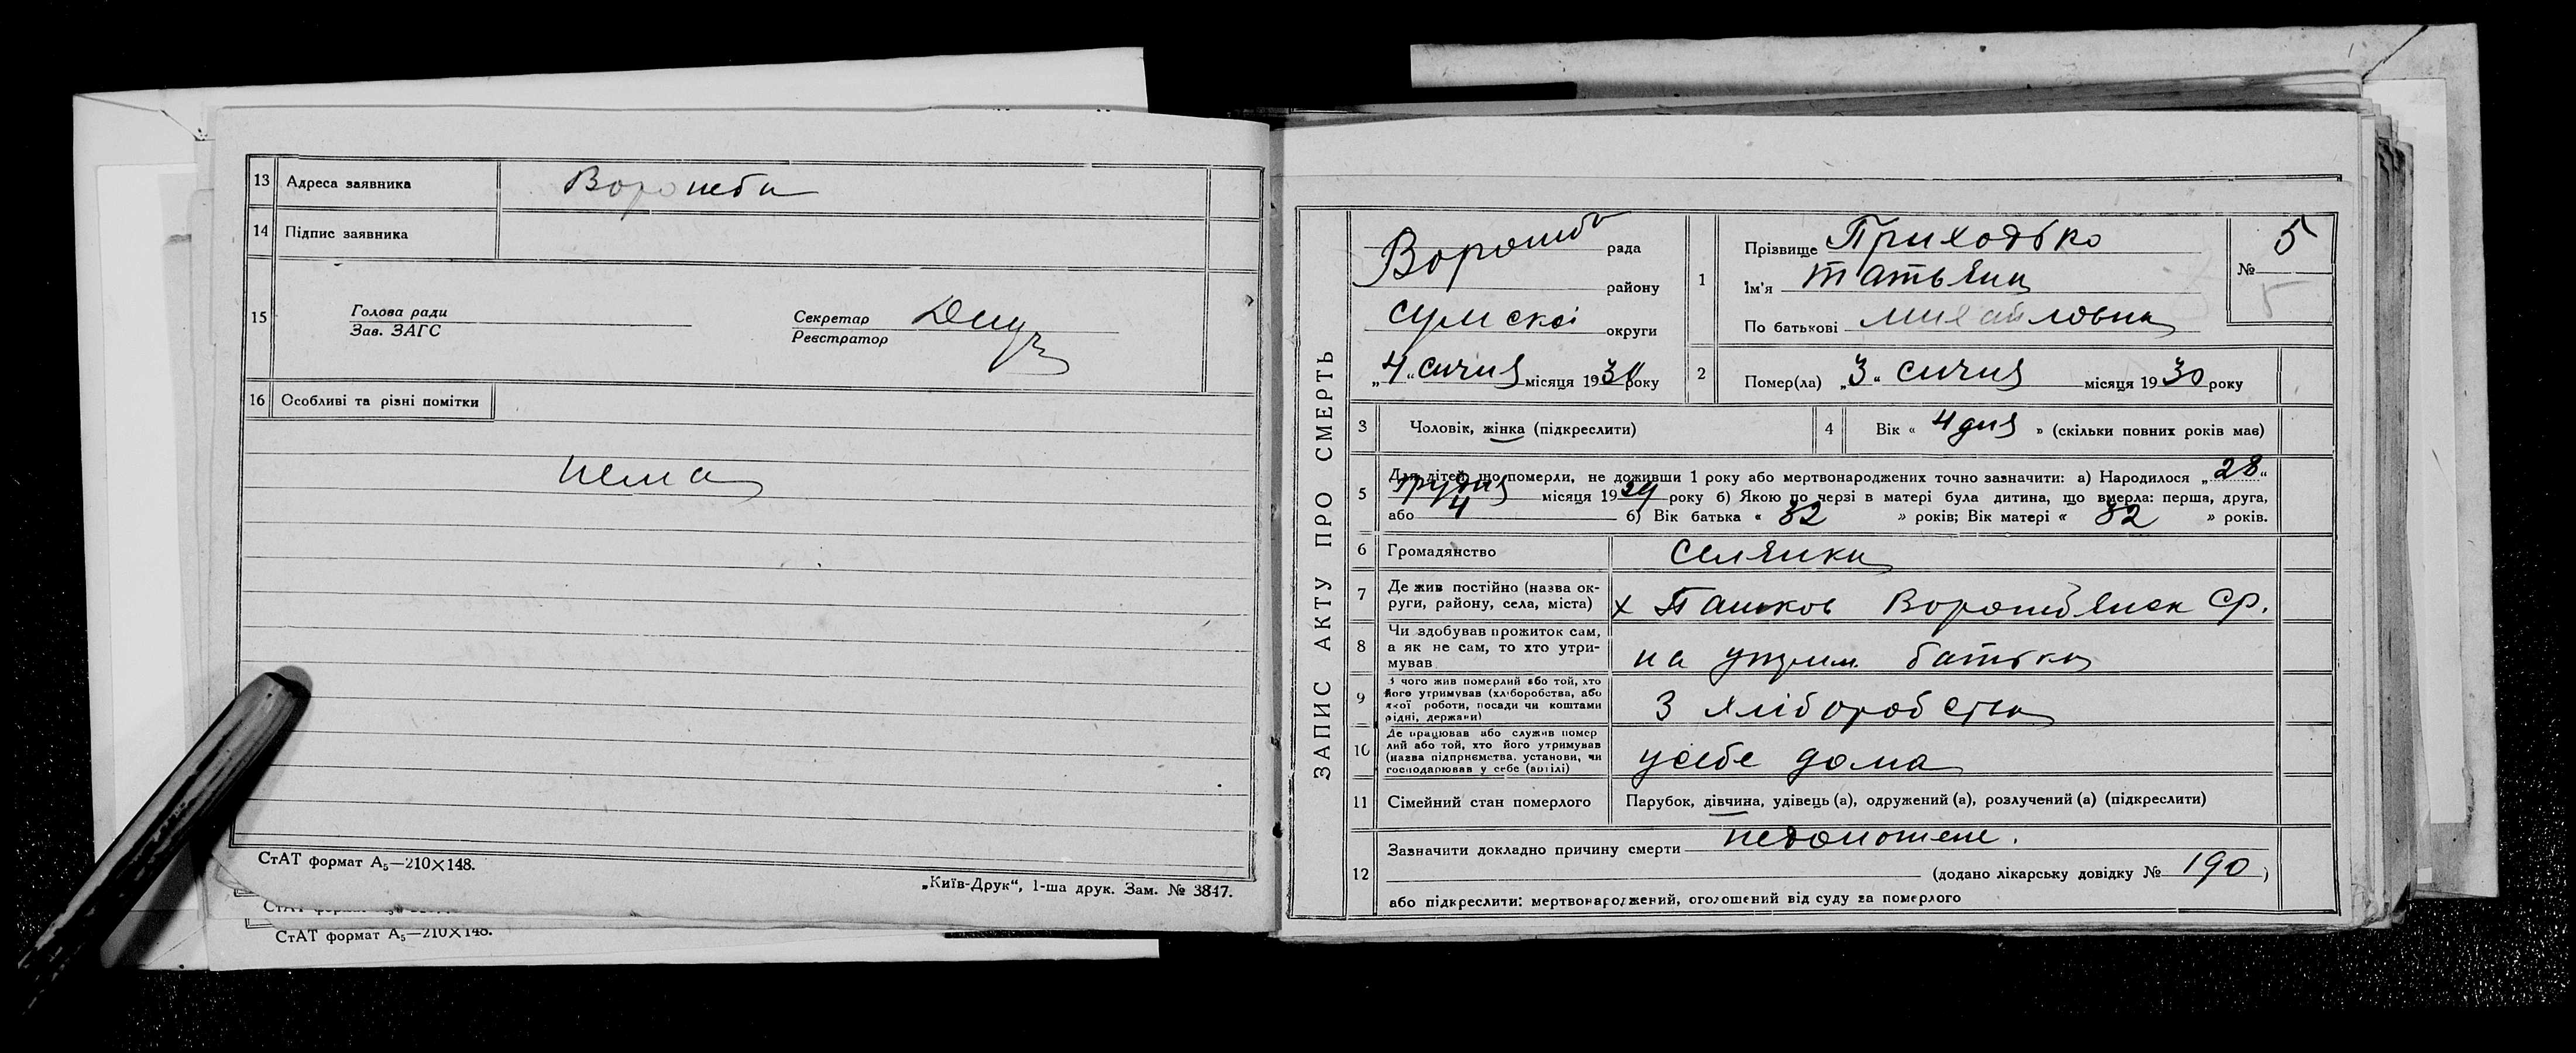 13 Адреса заявника Ворожба
14 Підпис заявника
15 Голова ради
Зав. ЗАГС
Секретар
Реєстратор
16 Особливі та різні помітки
нема
СтАТ формат А5—210×148.
„Київ-Друк“, 1-ша друк. Зам. № 3847.
СтАТ формат А5—210×148.
ЗАПИС АКТУ ПРО СМЕРТЬ
Ворожба рада
району
сумскої округи
„4“ січня місяця 1930 року
1 Прізвище Приходько
Ім'я Татьяна
По батькові Михайловна
№ 5
5
2 Помер(ла) „3“ січня місяця 1930 року
3 Чоловік, жінка (підкреслити)
4 Вік « 4 дня » (скільки повних років має)
5 Для дітей, що померли, не доживши 1 року або мертвонароджених точно зазначити: а) Народилося „28“
грудня місяця 1929 року б) Якою по черзі в матері була дитина, що вмерла: перша, друга,
або 4 б) Вік батька « 32 » років; Вік матері « 32 » років.
6 Громадянство селянка
7 Де жив постійно (назва ок-
руги, району, села, міста) х Пашков Ворожбянск ср.
8 Чи здобував прожиток сам,
а як не сам, то хто утри-
мував на утрим. батька
9 З чого жив померлий або той, хто
його утримував (хліборобства, або
якої роботи, посади чи коштами
рідні, держави) З хліборобства
10 Де працював або служив помер
лий або той, хто його утримував
(назва підприємства, установи, чи
господарював у себе (вдома) усебе дома
11 Сімейний стан померлого Парубок, дівчина, удівець (а), одружений (а), розлучений (а) (підкреслити)
12 Зазначити докладно причину смерти недоношене.
(додано лікарську довідку № 190)
або підкреслити: мертвонароджений, оголошений від суду за померлого